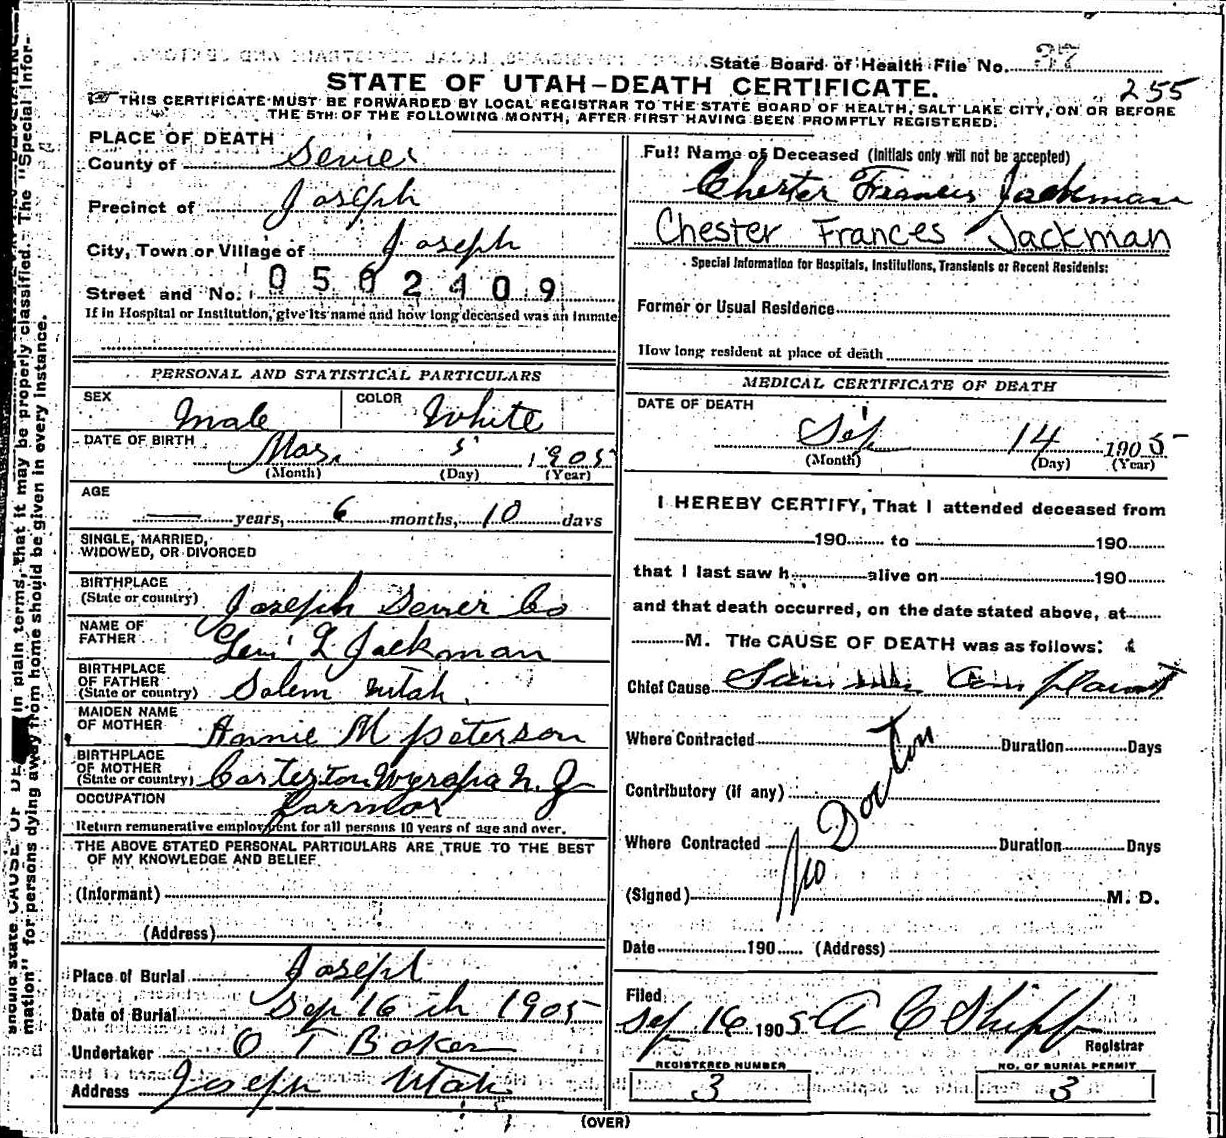 State Board of Health File No. 37
255
STATE OF UTAH-DEATH CERTIFICATE.
THIS CERTIFICATE MUST BE FORWARDED BY LOCAL REGISTRAR TO THE STATE BOARD OF HEALTH, SALT LAKE CITY, ON OR BEFORE
THE 5TH OF THE FOLLOWING MONTH, AFTER FIRST HAVING BEEN PROMPTLY REGISTERED.
PLACE OF DEATH
County of Sevier
Precinct of Joseph
City, Town or Village of Joseph
0502409
Street and No.
If in Hospital or Institution, give its name and how long deceased was an inmate
Full Name of Deceased (Initials only will not be accepted)
Chester Francis Jackman
Chester Frances Jackman
Special Information for Hospitals, Institutions, Transients or Recent Residents:
Former or Usual Residence
How long resident at place of death
PERSONAL AND STATISTICAL PARTICULARS
SEX Male COLOR White
DATE OF BIRTH Mar. 5 1905
(Month) (Day) (Year)
AGE
— years, 6 months, 10 days
SINGLE, MARRIED,
WIDOWED, OR DIVORCED
BIRTHPLACE
(State or country) Joseph Sevier Co
NAME OF
FATHER Levi L Jackman
BIRTHPLACE
OF FATHER
(State or country) Salem Utah.
MAIDEN NAME
OF MOTHER Annie M Peterson
BIRTHPLACE
OF MOTHER
(State or country)
OCCUPATION farmer
Return remunerative employment for all persons 10 years of age and over.
THE ABOVE STATED PERSONAL PARTICULARS ARE TRUE TO THE BEST
OF MY KNOWLEDGE AND BELIEF.
(Informant)
(Address)
Place of Burial Joseph
Date of Burial Sep 16 th 1905
Undertaker O T Baker
Address Joseph Utah
MEDICAL CERTIFICATE OF DEATH
DATE OF DEATH
Sep 14 1905
(Month) (Day) (Year)
I HEREBY CERTIFY, That I attended deceased from
190 to 190
that I last saw h alive on 190
and that death occurred, on the date stated above, at
M. The CAUSE OF DEATH was as follows:
Chief Cause Complaint
Where Contracted Duration Days
Contributory (if any)
Where Contracted Duration Days
No Doctor
(Signed) M. D.
Date 190 (Address)
Filed
Sep 16 1905 A C Shipp
Registrar
REGISTERED NUMBER
3
NO. OF BURIAL PERMIT
3
(OVER)
should state CAUSE OF DE in plain terms, that it may be properly classified. The "Special Infor-
mation" for persons dying away from home should be given in every instance.